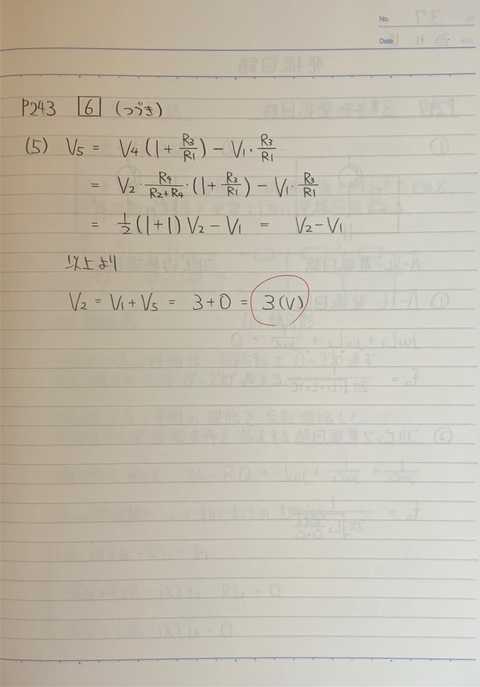 No.
Date
P243 6 (つづき)
(5) V5 = V4(1+R3/R1) - V1・R3/R1
= V2・R4/(R2+R4)・(1+R3/R1) - V1・R3/R1
= 1/2(1+1)V2 - V1 = V2-V1
以上より
V2 = V1+V5 = 3+0 = 3(V)